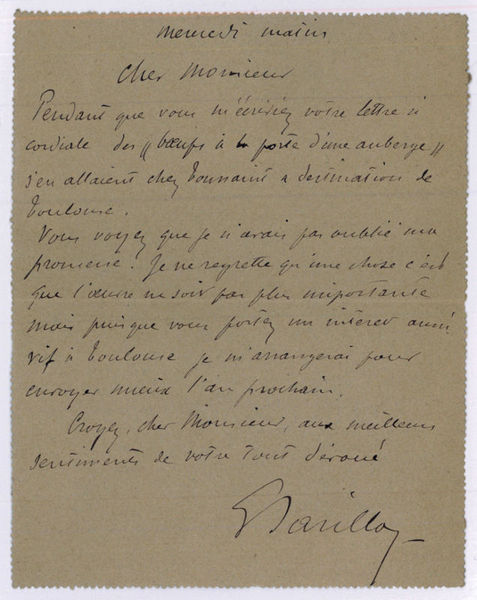 Mercredi matin
Cher Monsieur
Pendant que vous m'écriviez votre lettre si
cordiale des "bœufs à la porte d'une auberge"
s'en allaient chez Toussaint a destination de
Toulouse.
Vous voyez que je n'avais pas oublié ma
promesse. Je ne regrette qu'une chose c'est
que l'œuvre ne soit pas plus importante
mais puisque vous portez un intérêt aussi
vif à Toulouse je m'arrangerai pour
envoyer mieux l'an prochain.
Croyez, cher Monsieur, aux meilleurs
sentiments de votre tout dévoué